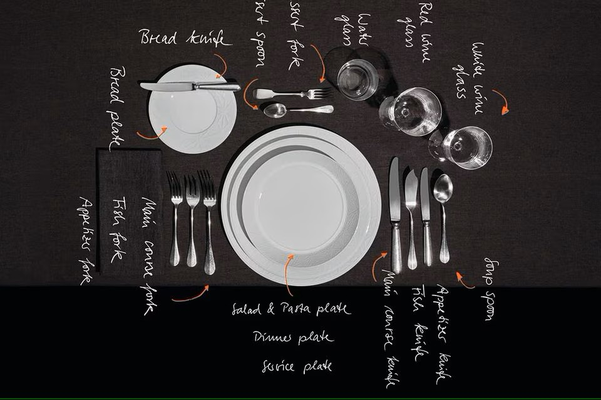 Bread knife
Bread plate
Water glass
Red wine glass
White wine glass
Appetizer fork
Fish fork
Main course fork
Salad & Pasta plate
Dinner plate
Service plate
Main course knife
Fish knife
Appetizer knife
Soup spoon
spoon
fork